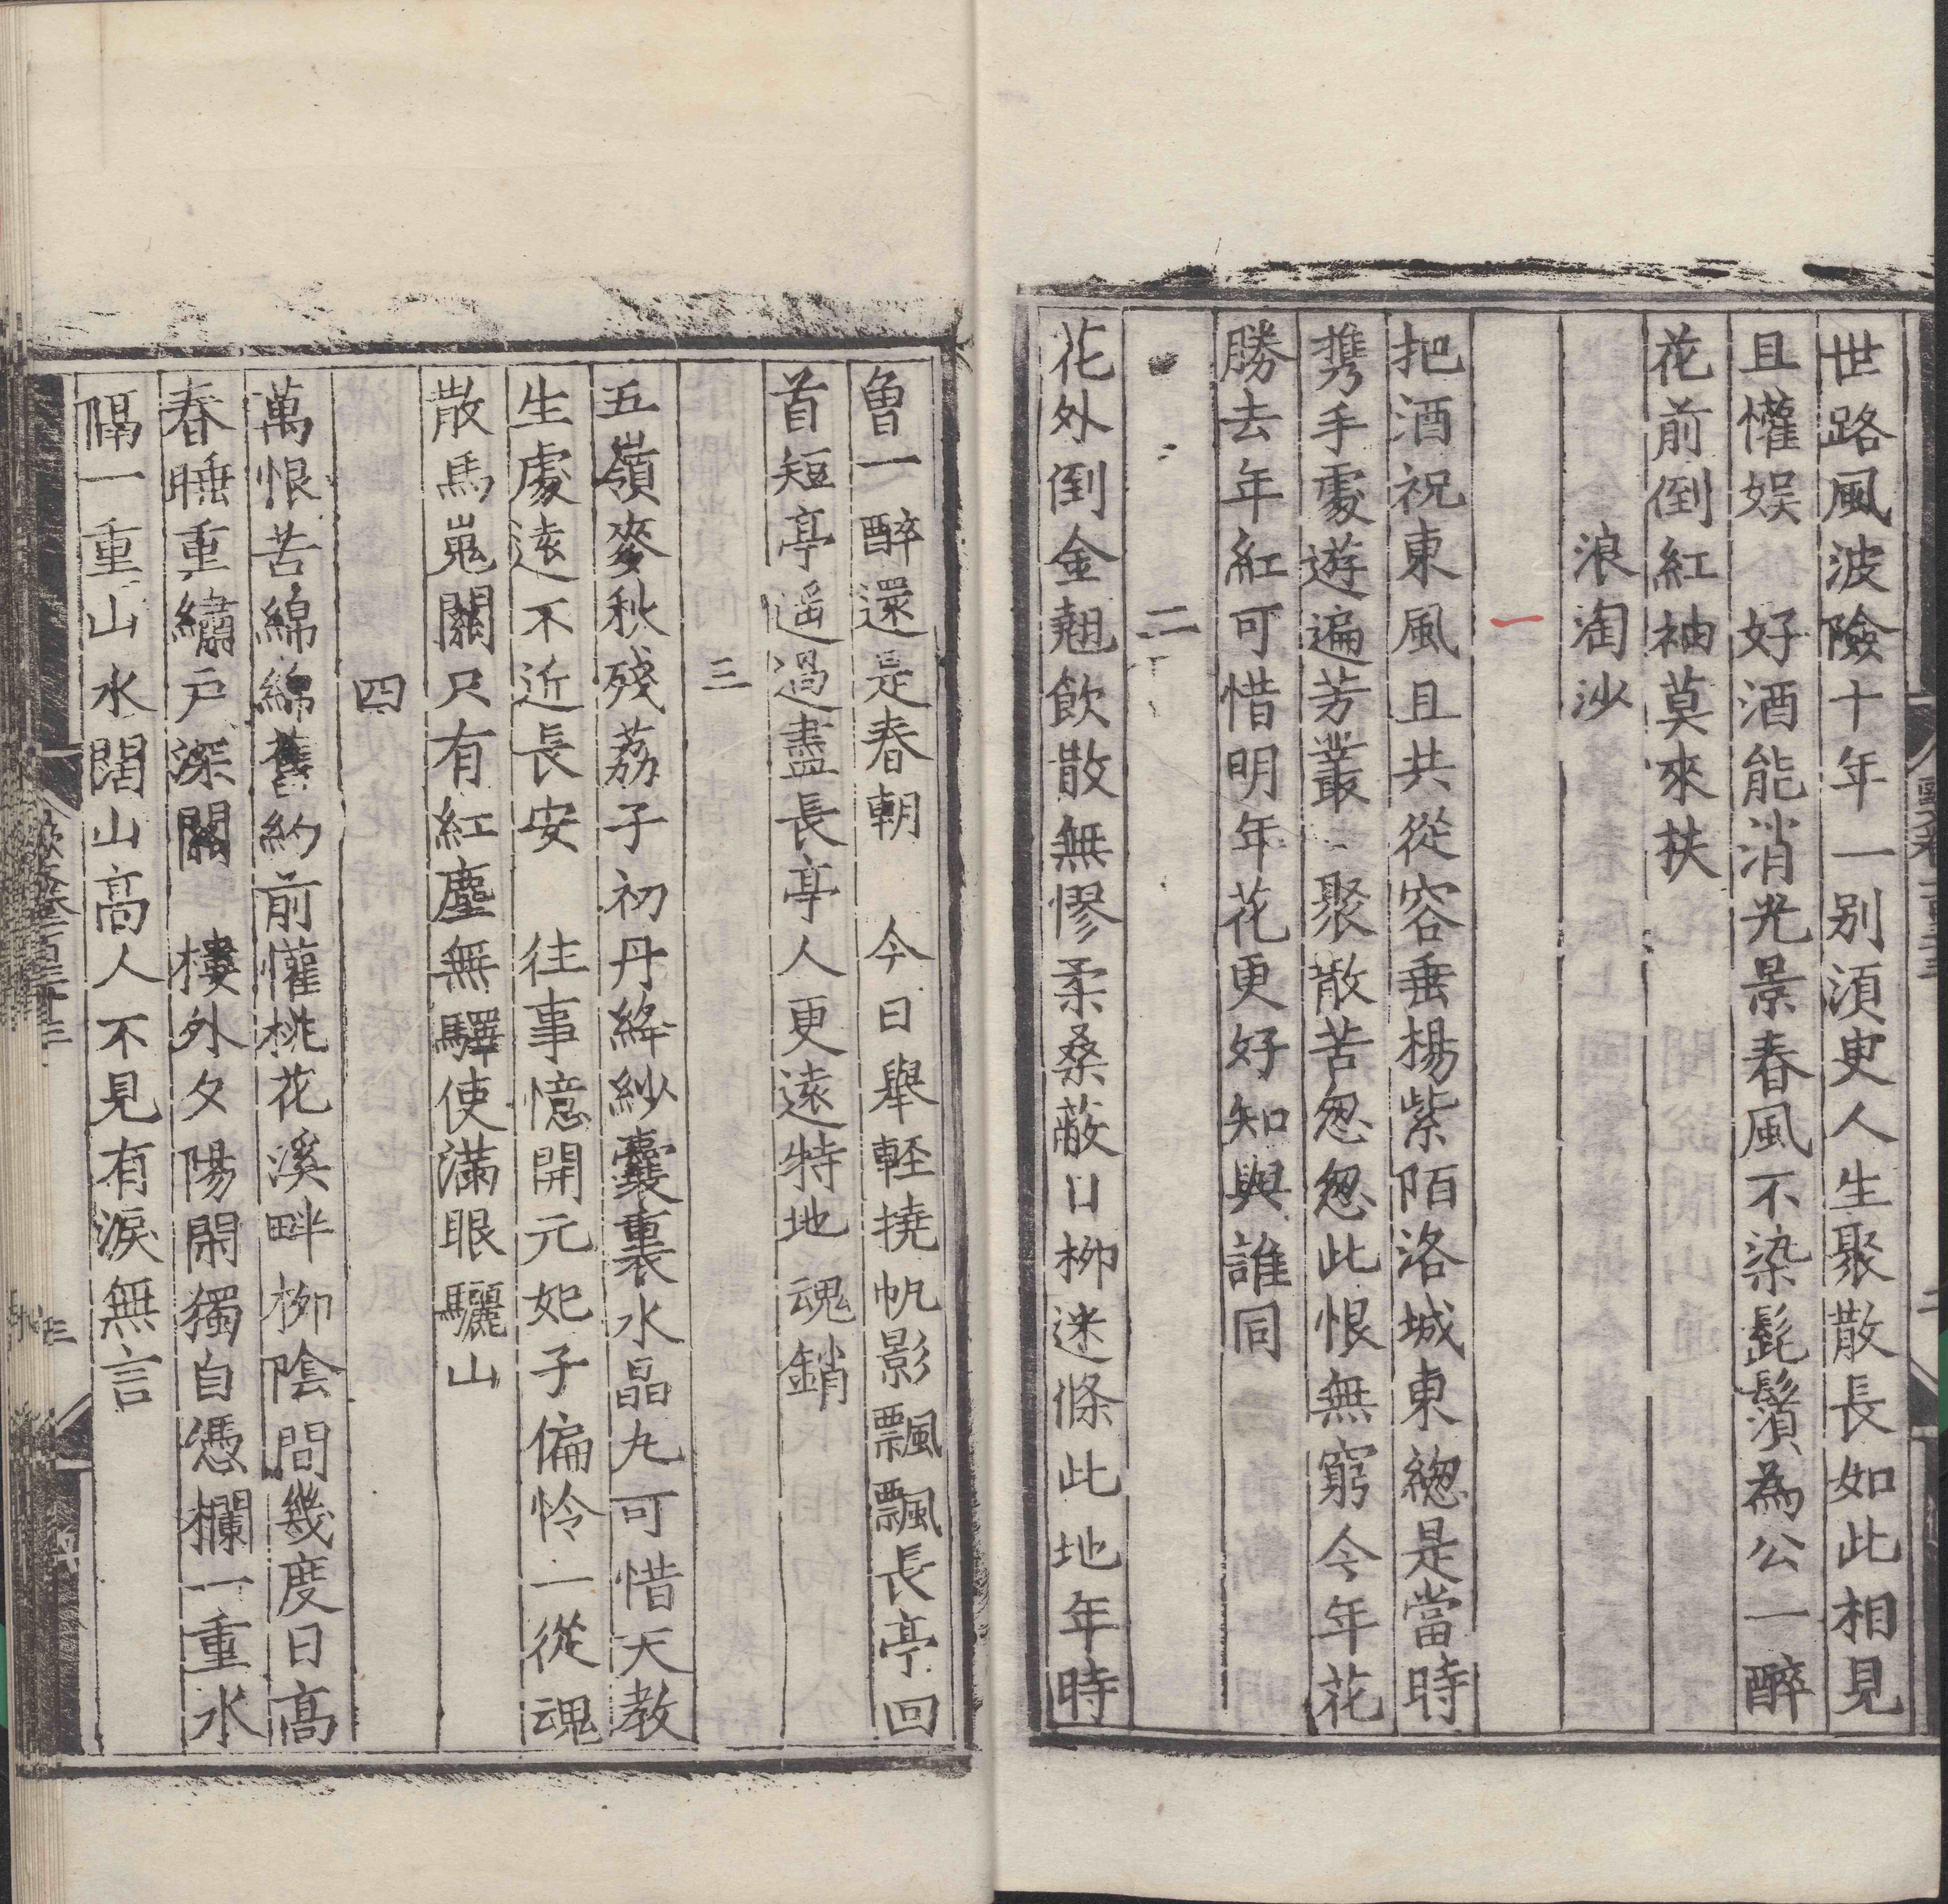 世路風波險十年一别須臾人生聚散長如此相見
且懽娱　好酒能消光景春風不染髭鬚為公一醉
花前倒紅袖莫來扶
浪淘沙
一
把酒祝東風且共從容垂楊紫陌洛城東緫是當時
攜手處遊遍芳叢　聚散苦怱怱此恨無窮今年花
勝去年紅可惜明年花更好知與誰同
二
花外倒金翹飲散無憀柔桑蔽日柳迷條此地年時
曾一醉還是春朝　今日舉軽撓帆影飄飄長亭回
首短亭遥過盡長亭人更逺特地魂銷
三
五嶺麥秋残荔子初丹絳紗囊裏水晶丸可惜天教
生處逺不近長安　往事憶開元妃子偏怜一從魂
散馬嵬關只有紅塵無驛使滿眼驪山
四
萬恨苦綿綿舊約前懽桃花溪畔柳陰間幾度日髙
春睡重繡戸深關　樓外夕陽閑獨自憑欄一重水
隔一重山水闊山髙人不見有淚無言